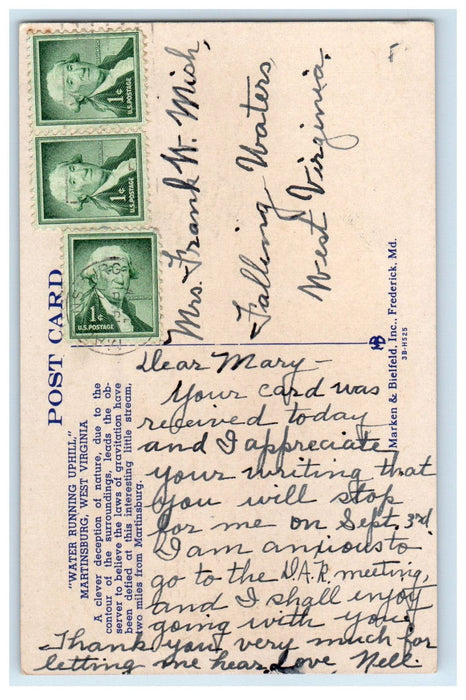 1¢
U.S. POSTAGE
1¢
U.S. POSTAGE
1¢
U.S. POSTAGE
POST CARD
"WATER RUNNING UPHILL"
MARTINSBURG, WEST VIRGINIA
A clever deception of nature, due to the
contour of the surroundings, leads the ob-
server to believe the laws of gravitation have
been defied at this interesting little stream,
two miles from Martinsburg.
Mrs. Frank W. Mish,
Falling Waters,
West Virginia.
Marken & Bielfeld, Inc., Frederick, Md.
3B-H525
Dear Mary —
Your card was
received today
and I appreciate
your writing that
you will stop
for me on Sept. 3rd.
I am anxious to
go to the D.A.R. meeting,
and I shall enjoy
going with you.
Thank you very much for
letting me hear. Love, Nell.